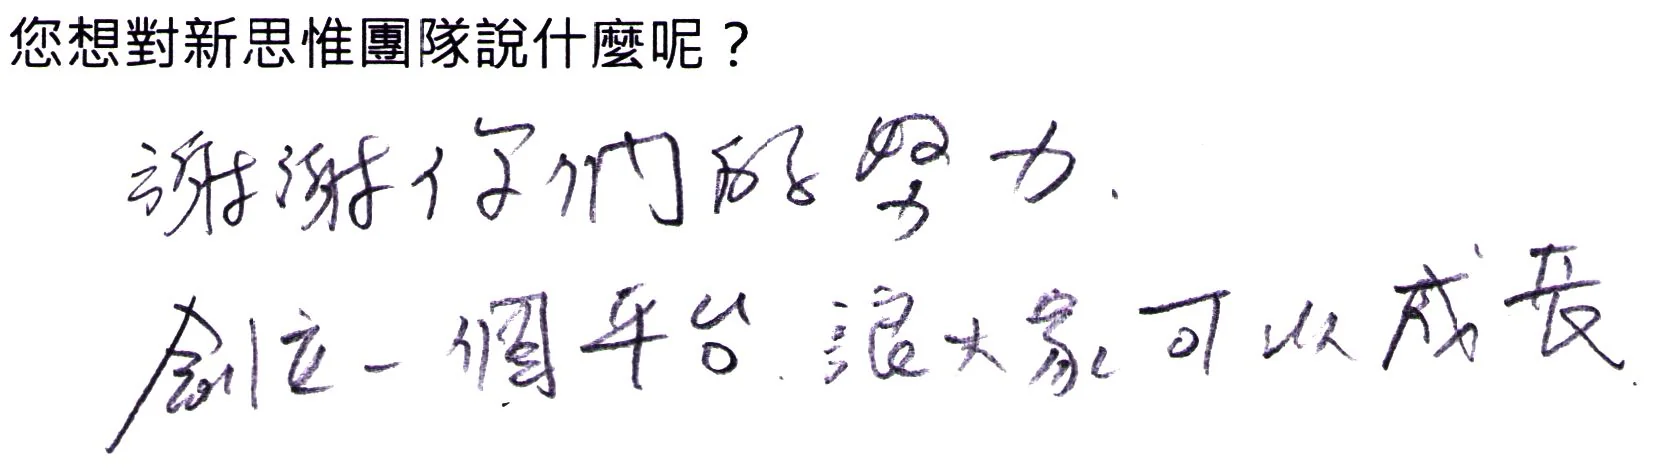 您想對新思惟團隊說什麼呢？
謝謝你們的努力.
創立一個平台.讓大家可以成長.